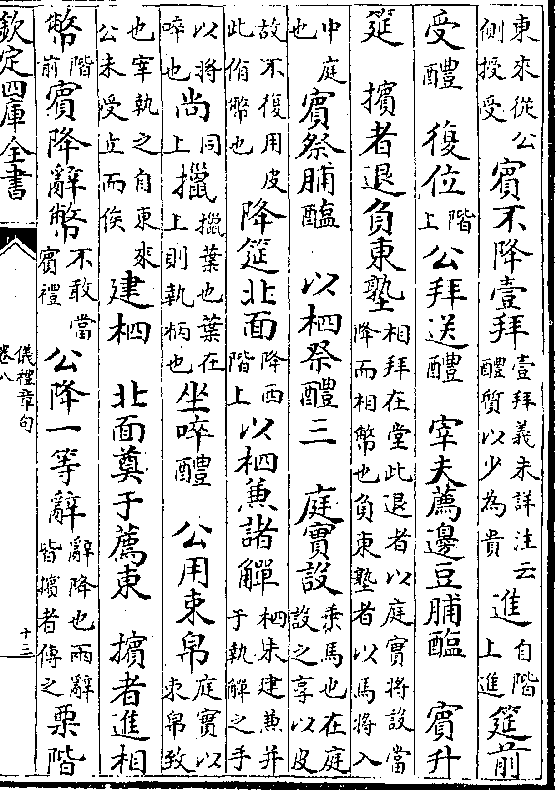 東來從公側授受賓不降壹拜壹拜義未詳注云醴質以少為貴進自階上進筵前
受醴　復位階上公拜送醴　宰夫薦籩豆脯醢　賓升
筵　擯者退負東塾相拜在堂此退者以庭實將設當降而相幣也負東塾者以馬將入
中庭也賓祭脯醢　以柶祭醴三　庭實設乗馬也在庭設之享以皮
故不復用皮此侑幣也降筵北面降西階上以柶兼諸觶柶未建兼并于執觶之手
以將啐也尚上擸同擸葉也葉在上則執柄也坐啐醴　公用束帛庭實以束帛致
也宰執之自東來公未受㢴而俟建柶　北面奠于薦東　擯者進相
幣階前賓降辭幣不敢當賓禮公降一等辭辭降也兩辭皆擯者傳之栗階
欽定四庫全書
儀禮章句
卷八
十三